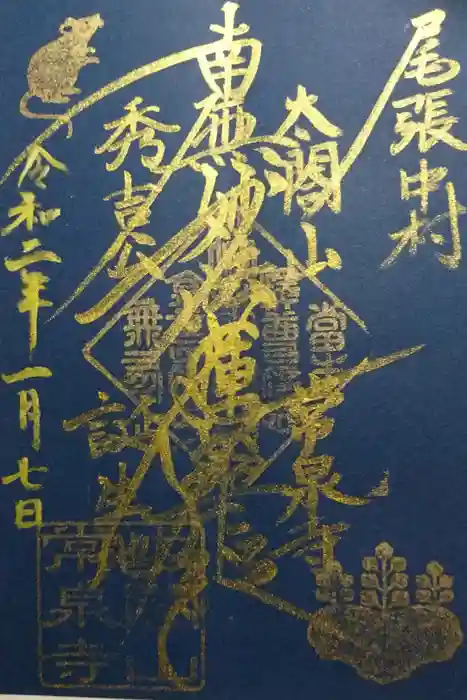 尾張中村
太閤山常泉寺
南無妙法蓮華経
秀吉公誕生
令和二年一月七日
常泉寺